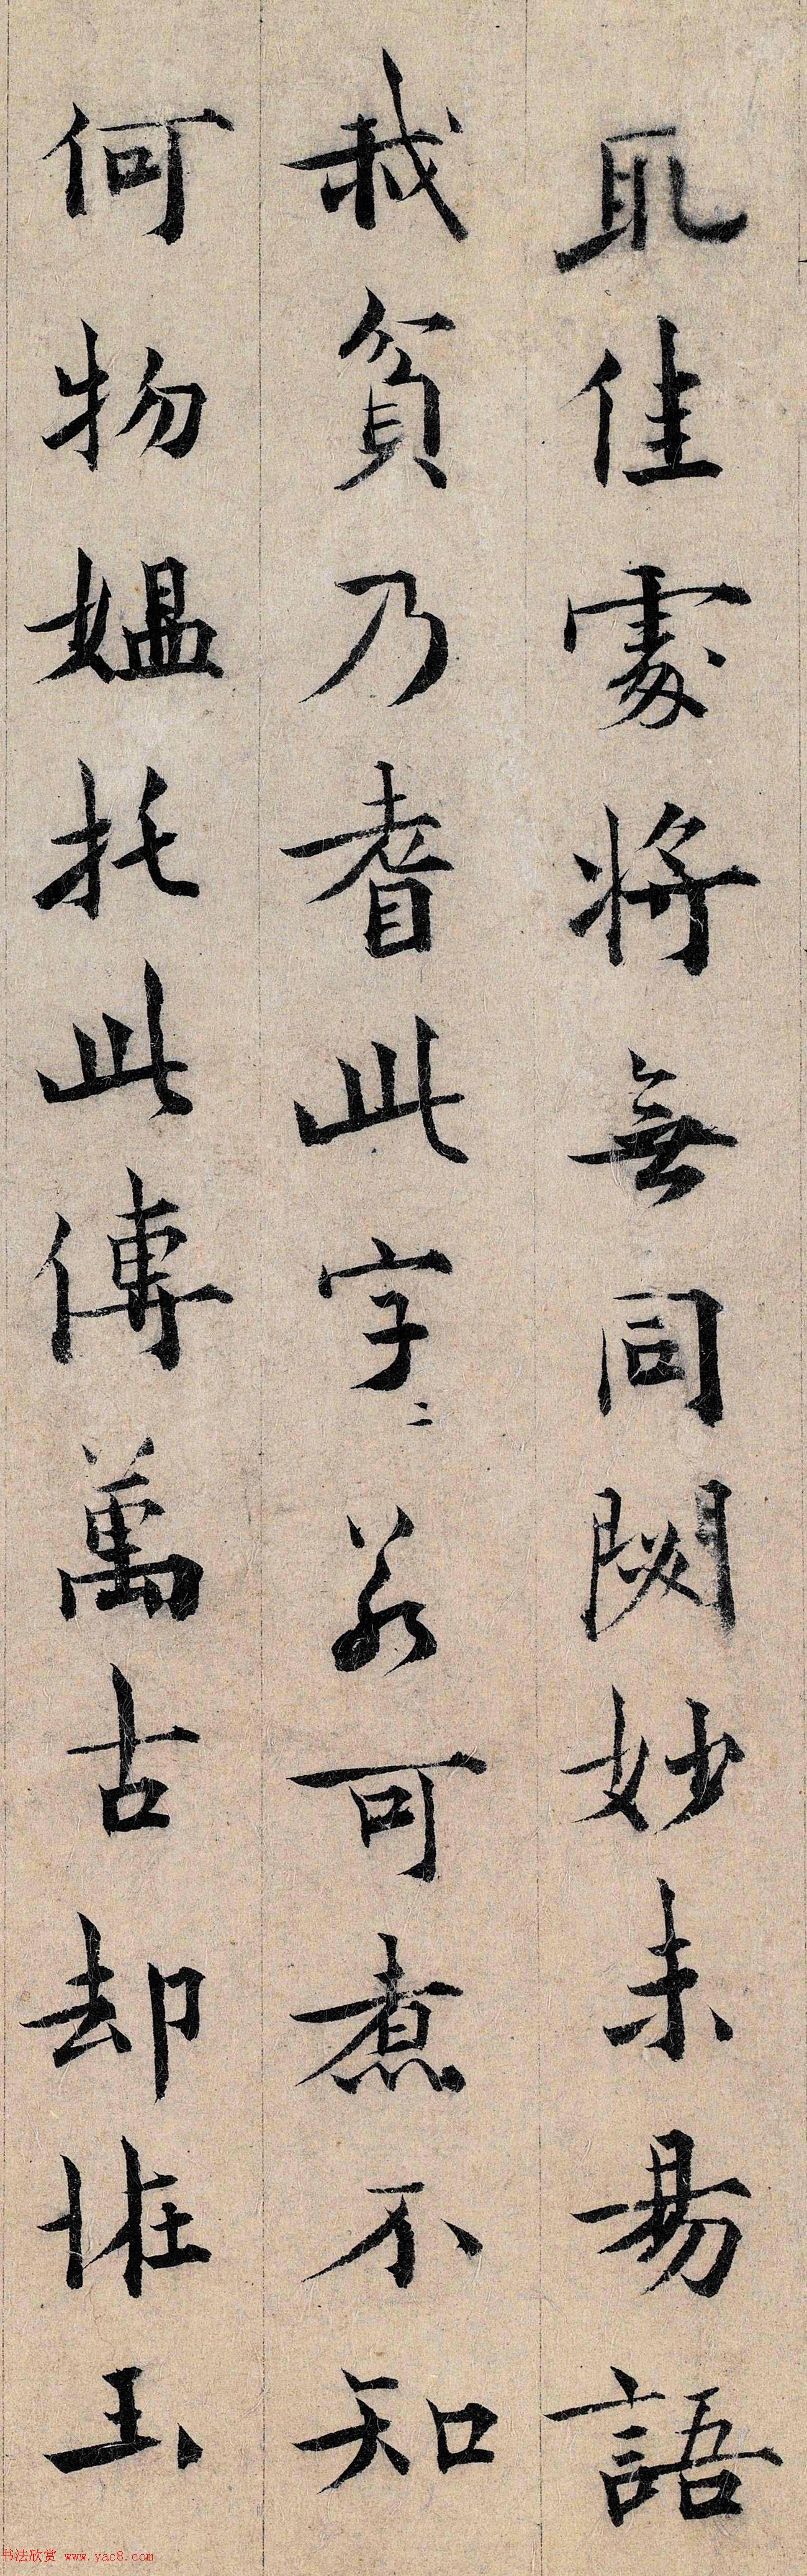 耴佳處將無同妙未易語
我貧乃耆此字二若可煮不知
何物媪托此傳萬古却恠玉
书法欣赏 www.yac8.com